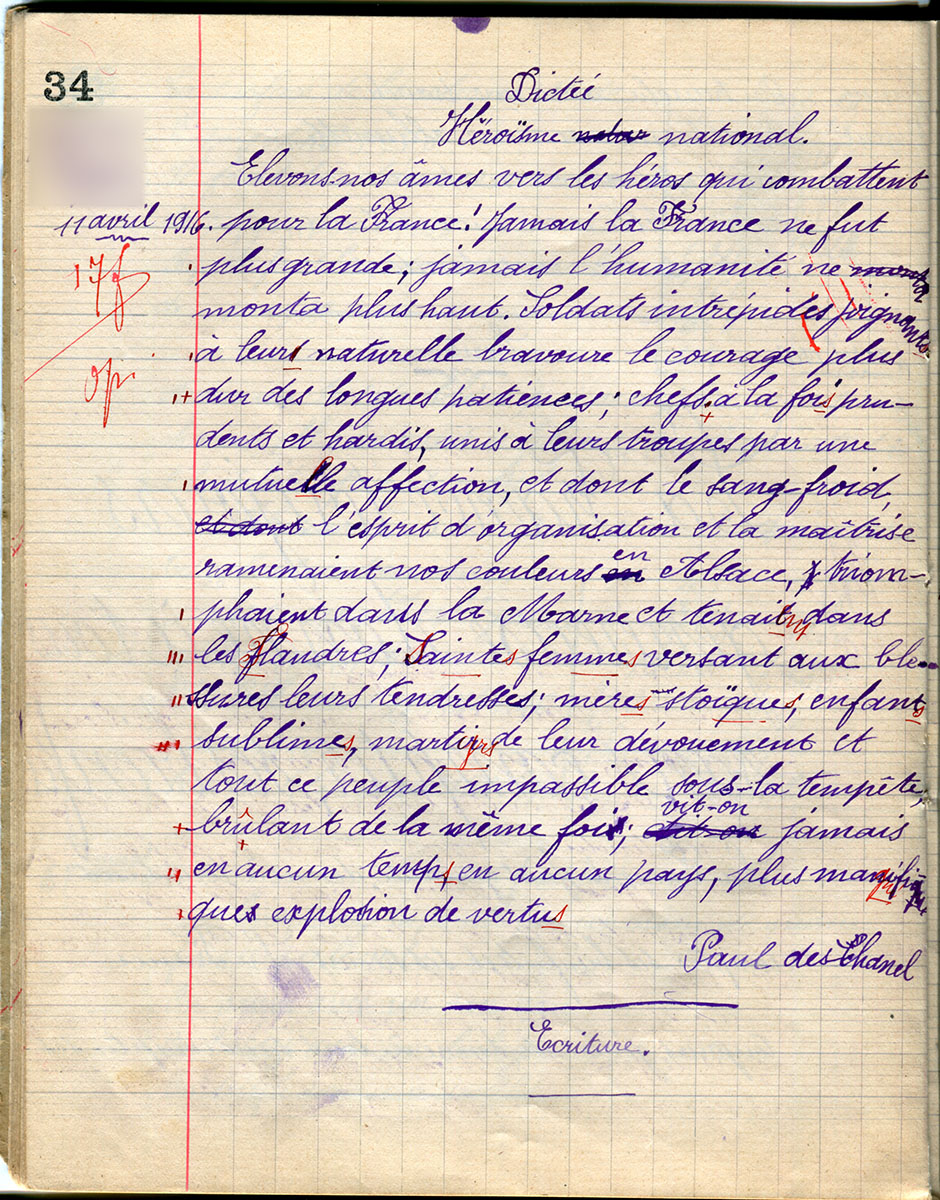 34
Dictée
Héroïsme national.
Elevons-nos âmes vers les héros qui combattent
11 avril 1916. pour la France! Jamais la France ne fut
17f
plus grande; jamais l'humanité ne
monta plus haut. Soldats intrépides joignants
à leurs naturelle bravoure le courage plus
0p.
dur des longues patiences; chefs à la fois pru-
dents et hardis, unis à leurs troupes par une
mutuelle affection, et dont le sang-froid,
et dont l'esprit d'organisation et la maîtrise
ramenaient nos couleurs en Alsace, triom-
phaient dans la Marne et tenaient dans
les Flandres; Saintes femmes versant aux ble-
ssures leurs tendresses; mères stoïques, enfants
sublimes, martyrs de leur dévouement et
tout ce peuple impassible sous-la tempête,
brûlant de la même foi; vit-on jamais
en aucun temps, en aucun pays, plus magnifi-
ques explosion de vertus
Paul des Chanel
Ecriture.